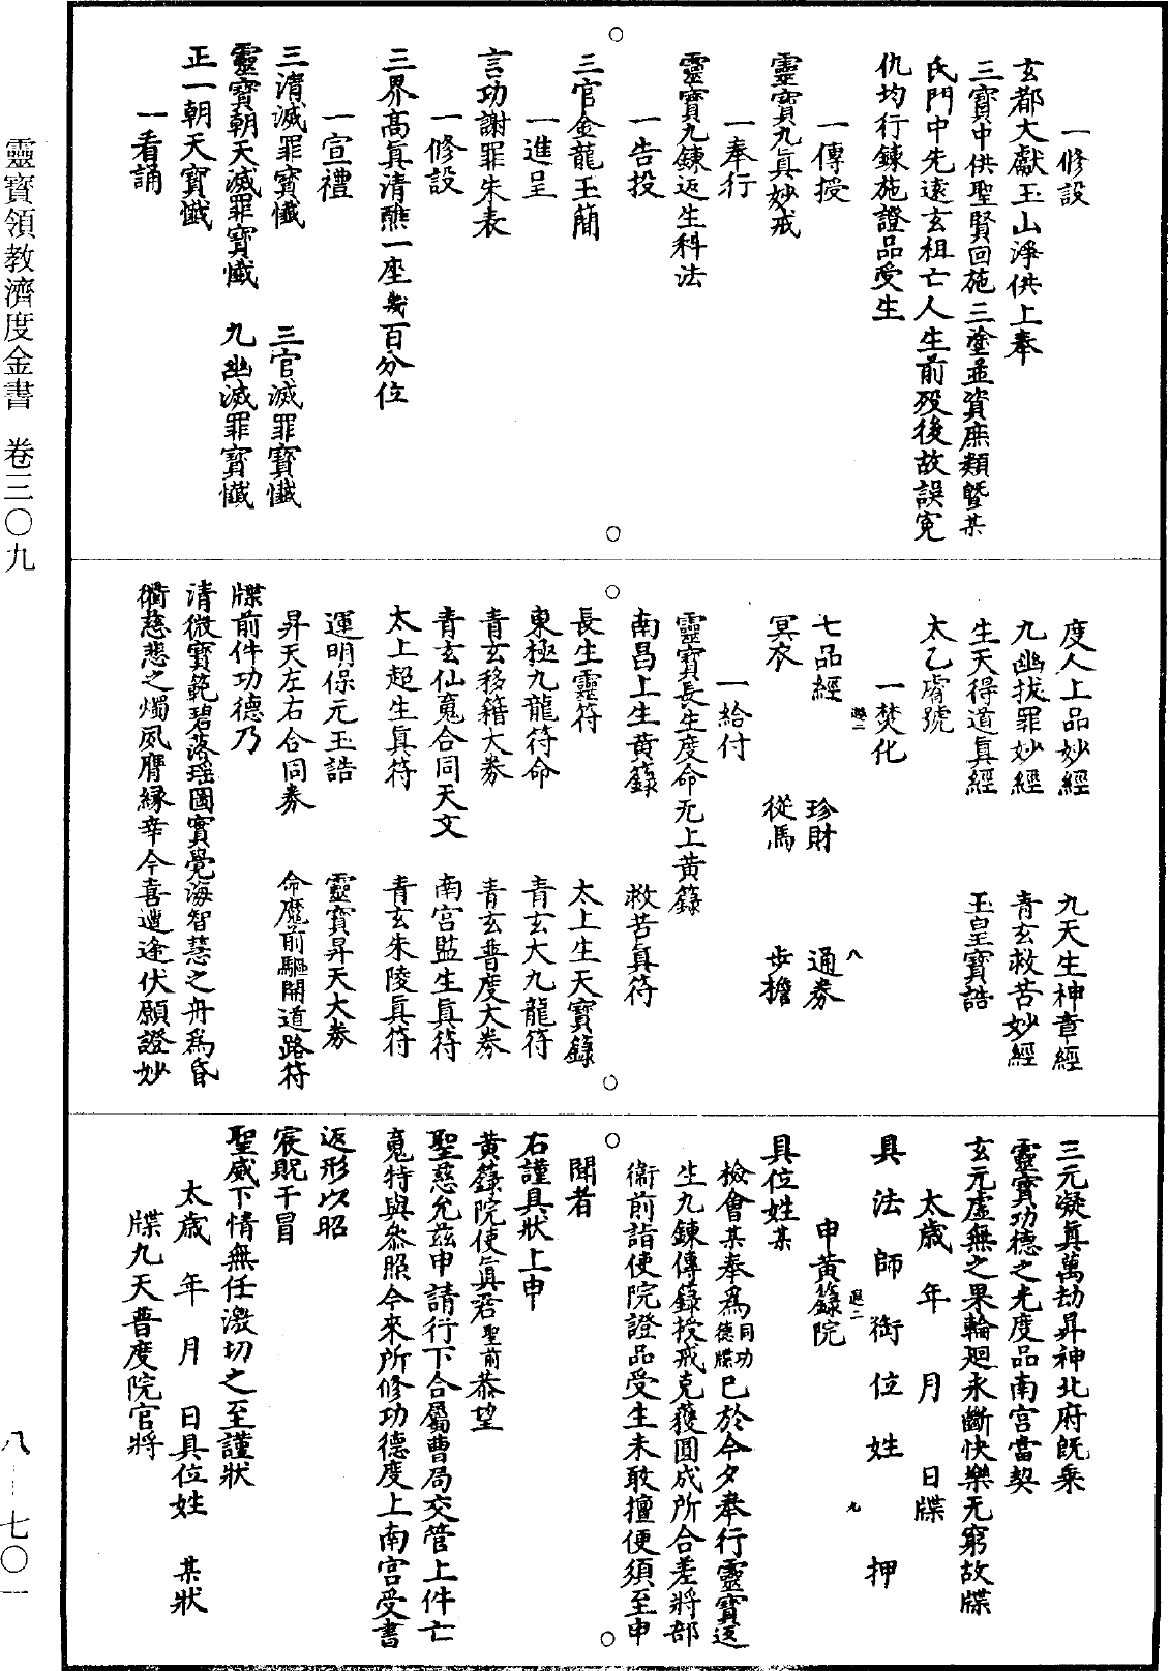 一修設
玄都大獻玉山淨供上奉
三寶中供聖賢回施三塗並資庶類暨某
氏門中先遠玄祖亡人生前歿後故誤冤
仇均行鍊施證品受生
一傳授
靈寶九真妙戒
一奉行
靈寶九鍊返生科法
一告投
三官金龍玉簡
一進呈
言功謝罪朱表
一修設
三界高真清醮一座幾百分位
一宣禮
三清滅罪寶懺 三官滅罪寶懺
靈寶朝天滅罪寶懺 九幽滅罪寶懺
正一朝天寶懺
一看誦
度人上品妙經 九天生神章經
九幽拔罪妙經 青玄救苦妙經
生天得道真經 玉皇寶誥
太乙㡣號
一焚化
遐二 八
七品經 珍財 通券
冥衣 從馬 步擔
一給付
靈寶長生度命无上黃籙
南昌上生黃籙 救苦真符
長生靈符 太上生天寶籙
東極九龍符命 青玄大九龍符
青玄移籍大券 青玄普度大券
青玄仙䰟合同天文 南宮監生真符
太上超生真符 青玄朱陵真符
運明保元玉誥 靈寶昇天大券
昇天左右合同券 命魔前驅開道路符
牒前件功德乃
清微寶範碧落瑶圖實覺海智慧之舟為昏
衢慈悲之燭夙膺緣幸今喜遭逢伏願證妙
三元凝真萬劫昇神北府既乘
靈寶功德之光度品南宮當契
玄元虛無之果輪廻永斷快樂无窮故牒
太歲 年 月 日牒
具法師銜位姓 押
遐二 九
申黃籙院
具位姓某
檢會某奉為同功德牒已於今夕奉行靈寶返
生九鍊傳籙授戒克薐圓成所合差將部
衞前詣使院證品受生未敢擅便須至申
聞者
右謹具狀上申
黃籙院使真君聖前恭望
聖慈允茲申請行下合屬曹局交管上件亡
䰟特與參照今來所修功德度上南宮受書
返形以昭
宸貺干冒
聖威下情無任激切之至謹狀
太歲 年 月 日具位姓 某狀
牒九天普度院官將
靈寶領教濟度金書 卷三〇九
八—七〇一